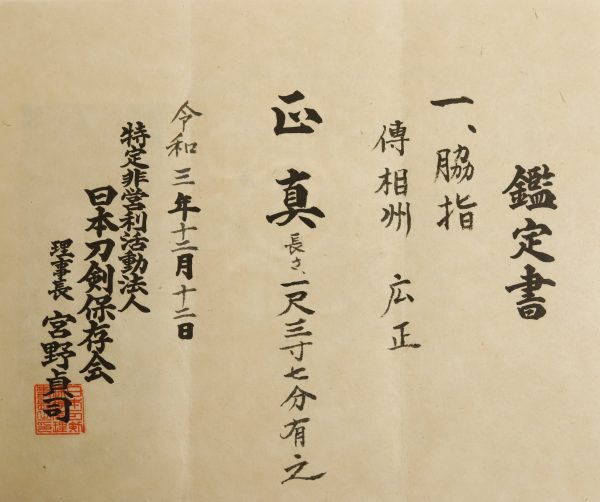 鑑定書
一、脇指
傳相州 広正
正真
長さ、一尺三寸七分有之
令和三年十二月十二日
特定非営利活動法人
日本刀剣保存会
理事長 宮野貞司